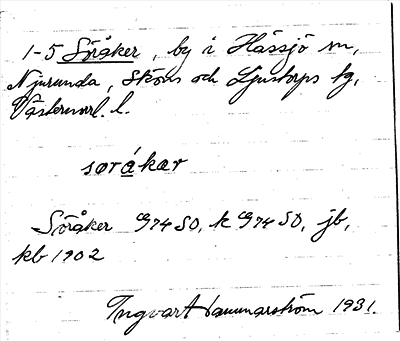 1-5 Söråker, by i Hässjö sn,
Njurunda, Sköns och Ljustorps tg,
Västernorrl. l.
sørákær
Söråker G74SO, k G74SO, jb,
kb 1902
Ingvar Hammarström 1931.